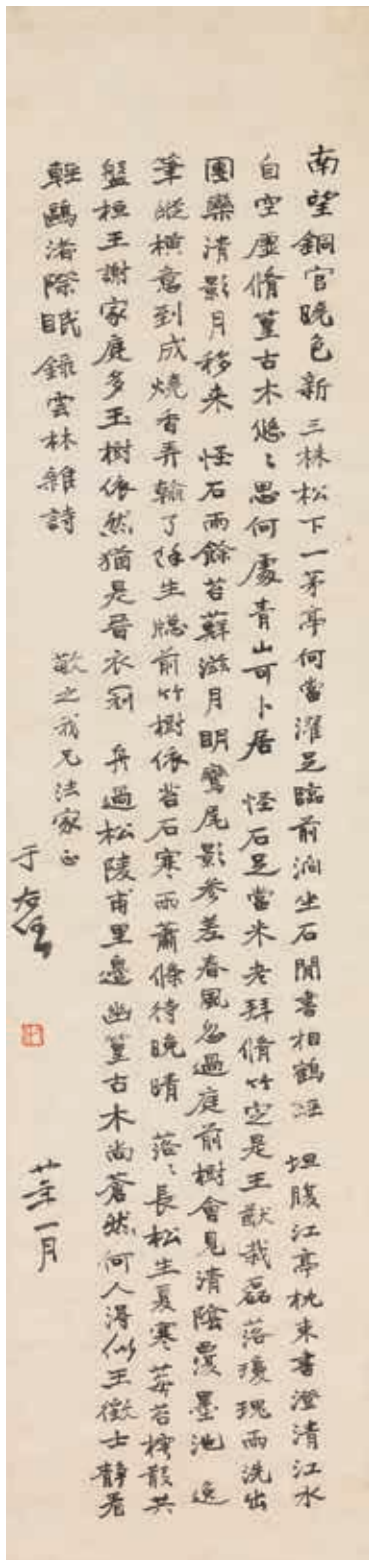 南望銅官晚色新三株松下一茅亭何當濯足臨前澗坐石閒書相鶴經 坦腹江亭枕束書澄清江水
自空虛脩篁古木悠〻思何處青山可卜居 怪石足當米老拜脩竹定是王猷栽磊落瓊瑰雨洗出
團欒清影月移来 怪石雨餘苔蘚滋月明鸞尾影參差春風忽過庭前樹會見清陰覆墨池 逸
筆縱橫意到成燒香弄翰了餘生牕前竹樹依苔石寒雨蕭條待晚晴 落〻長松生夏寒莓苔樗散共
盤桓王謝家庭多玉樹依然猶是晉衣冠 舟過松陵甫里邊幽篁古木尚蒼然何人得似王徵士靜看
輕鷗渚際眠 錄雲林雜詩
敬之我兄法家正
于右任
廿年一月